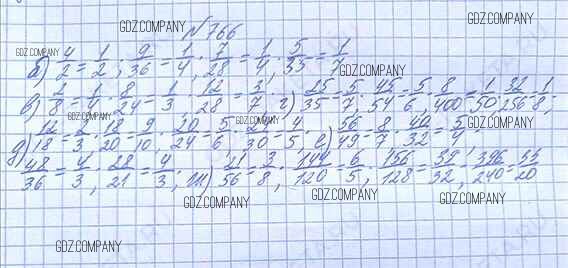 GDZ.COMPANY GDZ.COMPANY
№ 766
GDZ.COMPANY
б) 4/2 = 1/2; 9/36 = 1/4; 7/28 = 1/4; 5/35 = 1/7
GDZ.COMPANY
в) 2/8 = 1/4; 8/24 = 1/3; 12/28 = 3/7 г) 25/35 = 5/7; 45/54 = 5/6; 8/400 = 1/50; 32/256 = 1/8;
GDZ.COMPANY GDZ.COMPANY
д) 12/18 = 2/3; 18/20 = 9/10; 20/24 = 5/6; 24/30 = 4/5; е) 56/49 = 8/7; 40/32 = 5/4
48/36 = 4/3; 28/21 = 4/3; ж) 21/56 = 3/8; 144/120 = 6/5; 156/128 = 39/32; 396/240 = 33/20
GDZ.COMPANY GDZ.COMPANY GDZ.COMPANY
GDZ.COMPANY